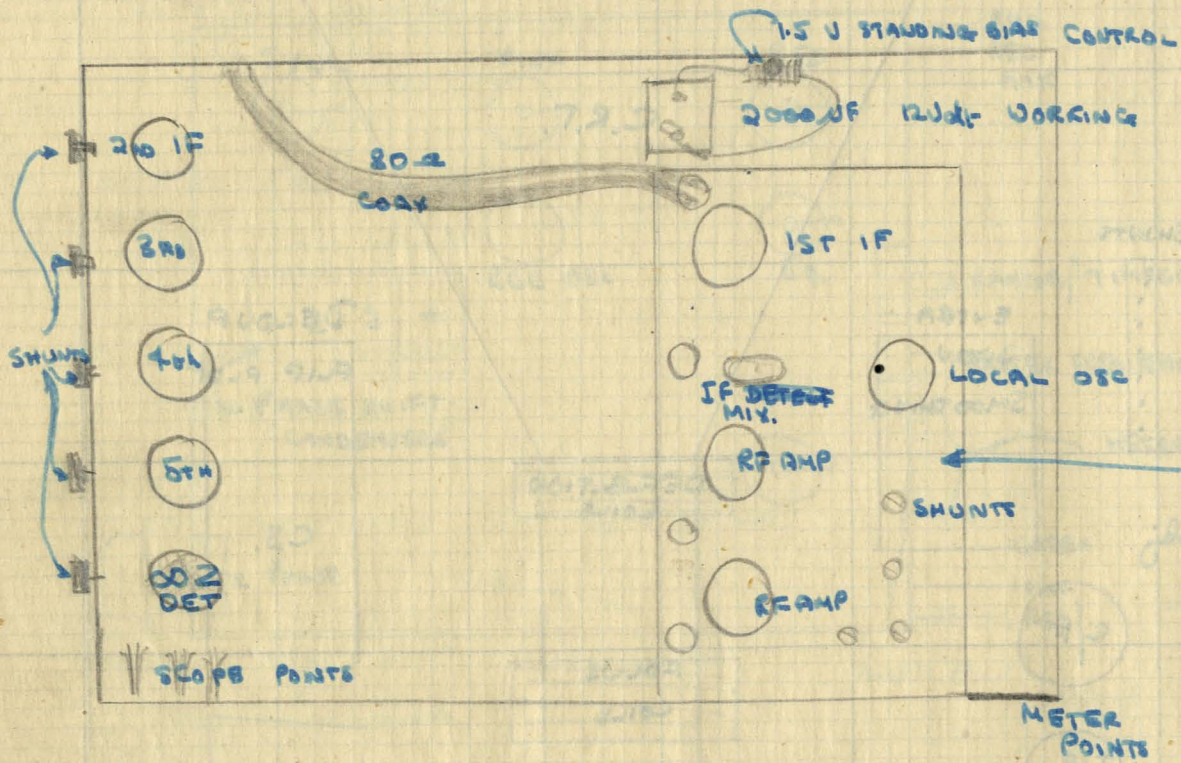 1.5 V STANDING BIAS CONTROL
2000 UF 12 Volt WORKING
2ND IF
80 Ω
COAX
3RD
1ST IF
SHUNTS
4th
LOCAL OSC
IF DETECT
MIX.
5TH
RF AMP
SHUNTS
DET
RF AMP
SCOPE POINTS
METER
POINTS